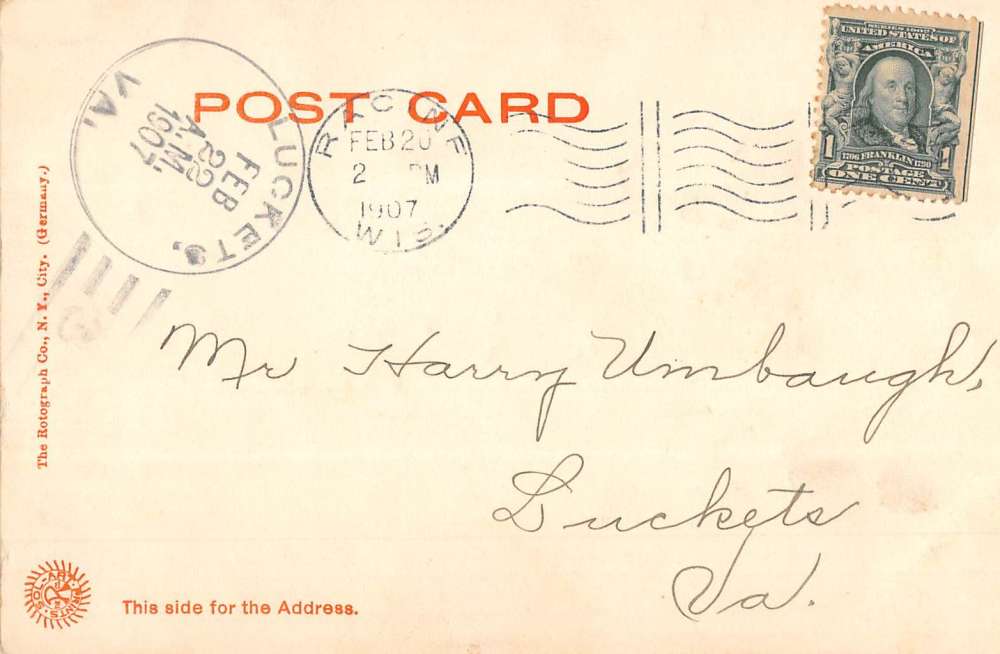 POST CARD
LUCKETS,
VA.
FEB
22
A.M.
1907
RACINE
FEB 20
2 PM
1907
WIS.
SERIES 1902
UNITED STATES OF
AMERICA
1 1
1706 FRANKLIN 1790
POSTAGE
ONE CENT
The Rotograph Co., N. Y., City. (Germany.)
Mr Harry Umbaugh,
Luckets
Va.
SOL-ART PRINTS
This side for the Address.